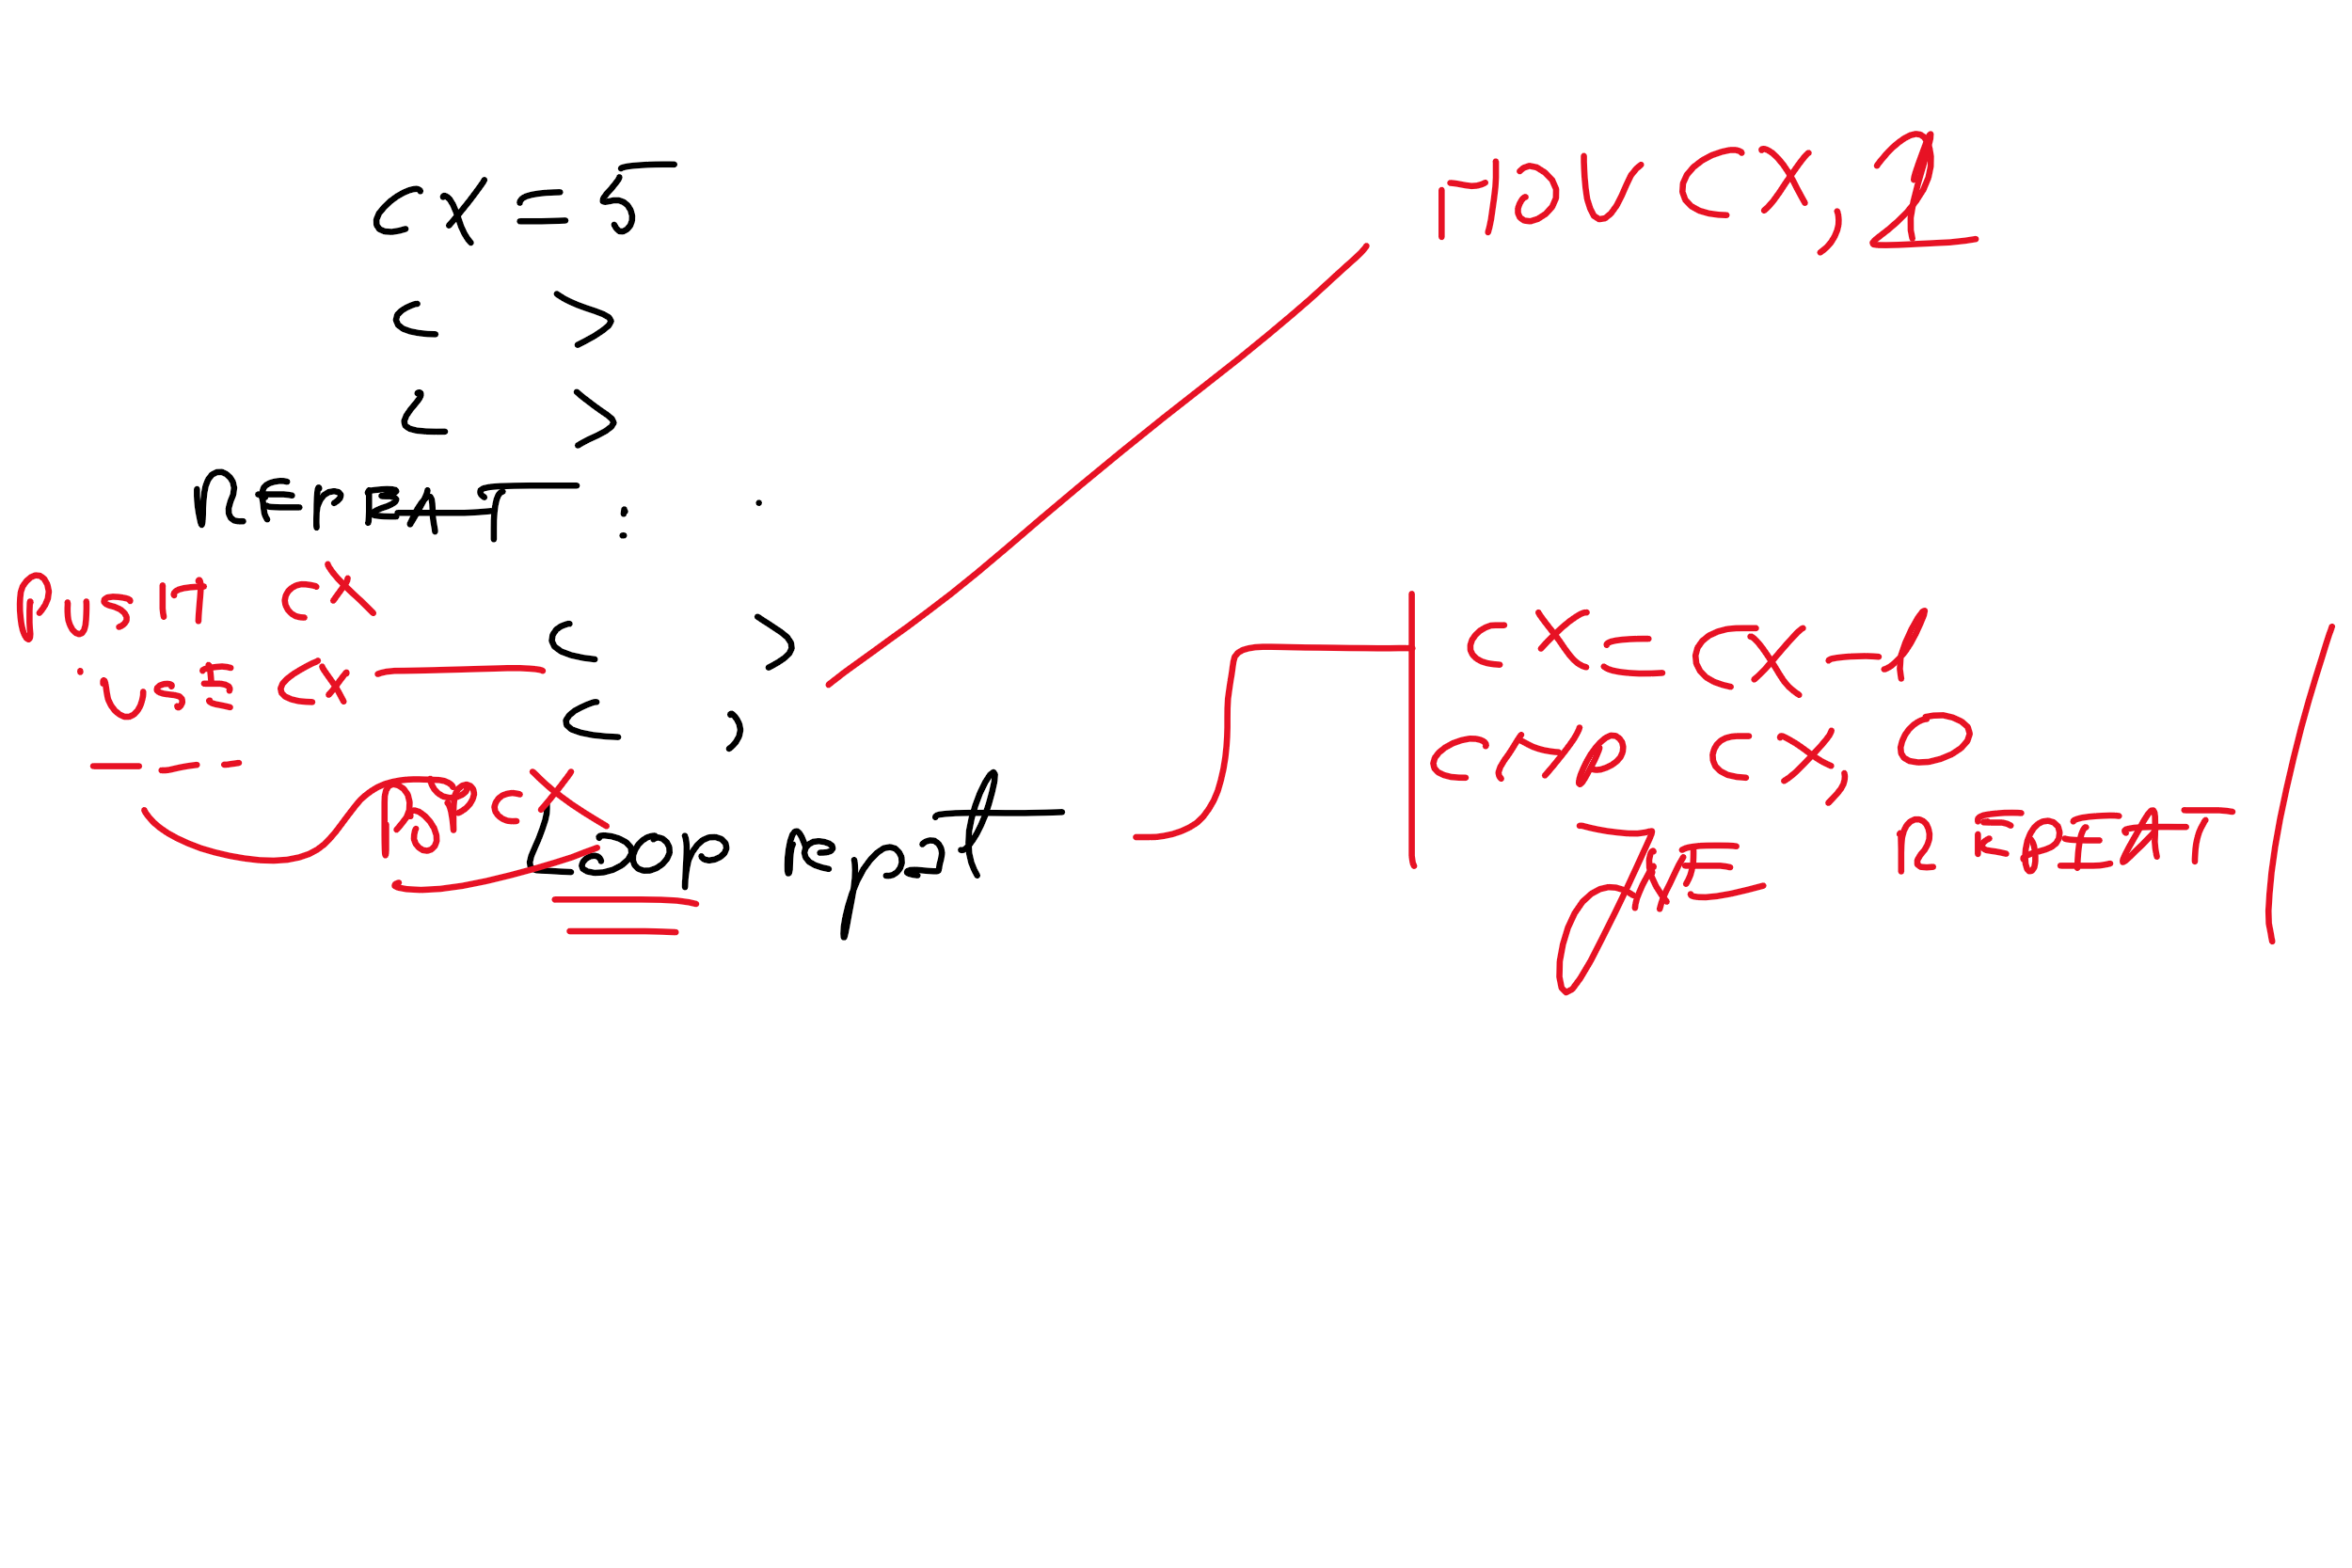 cx = 5
< >
< >
REPEAT :
PUSH cx
use cx
< >
< >
POP cx
Loop Repeat
MOV CX, 2
CX = CX - 1
CMP CX, 0
JNE REPEAT